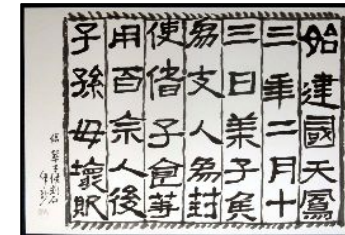 始建國天鳳
三年二月十
三日萊子矦
為支人為封
使偖子食等
用百余人後
子孫毋壞敗
臨萊子侯刻石